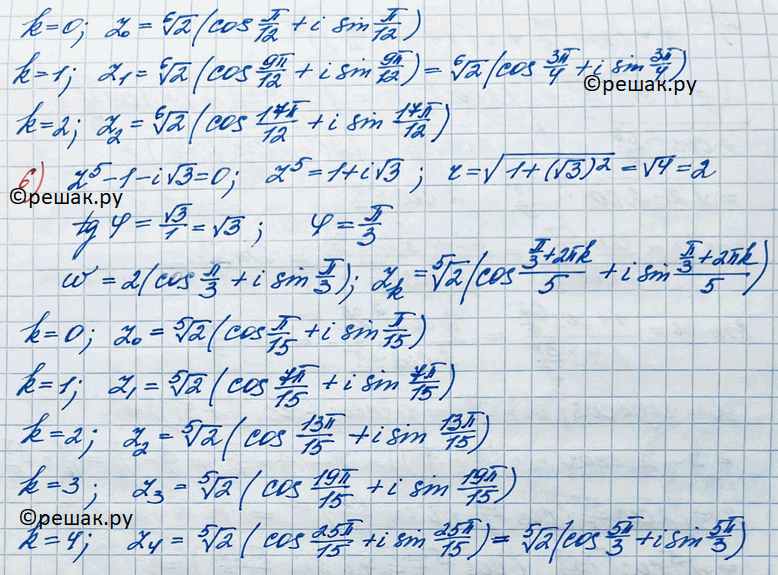 k=0; z₀ = ⁶√2 (cos π/12 + i sin π/12)
k=1; z₁ = ⁶√2 (cos 9π/12 + i sin 9π/12) = ⁶√2 (cos 3π/4 + i sin 3π/4)
©решак.ру
k=2; z₂ = ⁶√2 (cos 17π/12 + i sin 17π/12)
б) z⁵ - 1 - i√3 = 0; z⁵ = 1 + i√3; r = √(1 + (√3)²) = √4 = 2
©решак.ру
tg φ = √3/1 = √3; φ = π/3
w = 2(cos π/3 + i sin π/3); z_k = ⁵√2 (cos (π/3 + 2πk)/5 + i sin (π/3 + 2πk)/5)
k=0; z₀ = ⁵√2 (cos π/15 + i sin π/15)
k=1; z₁ = ⁵√2 (cos 7π/15 + i sin 7π/15)
k=2; z₂ = ⁵√2 (cos 13π/15 + i sin 13π/15)
k=3; z₃ = ⁵√2 (cos 19π/15 + i sin 19π/15)
©решак.ру
k=4; z₄ = ⁵√2 (cos 25π/15 + i sin 25π/15) = ⁵√2 (cos 5π/3 + i sin 5π/3)